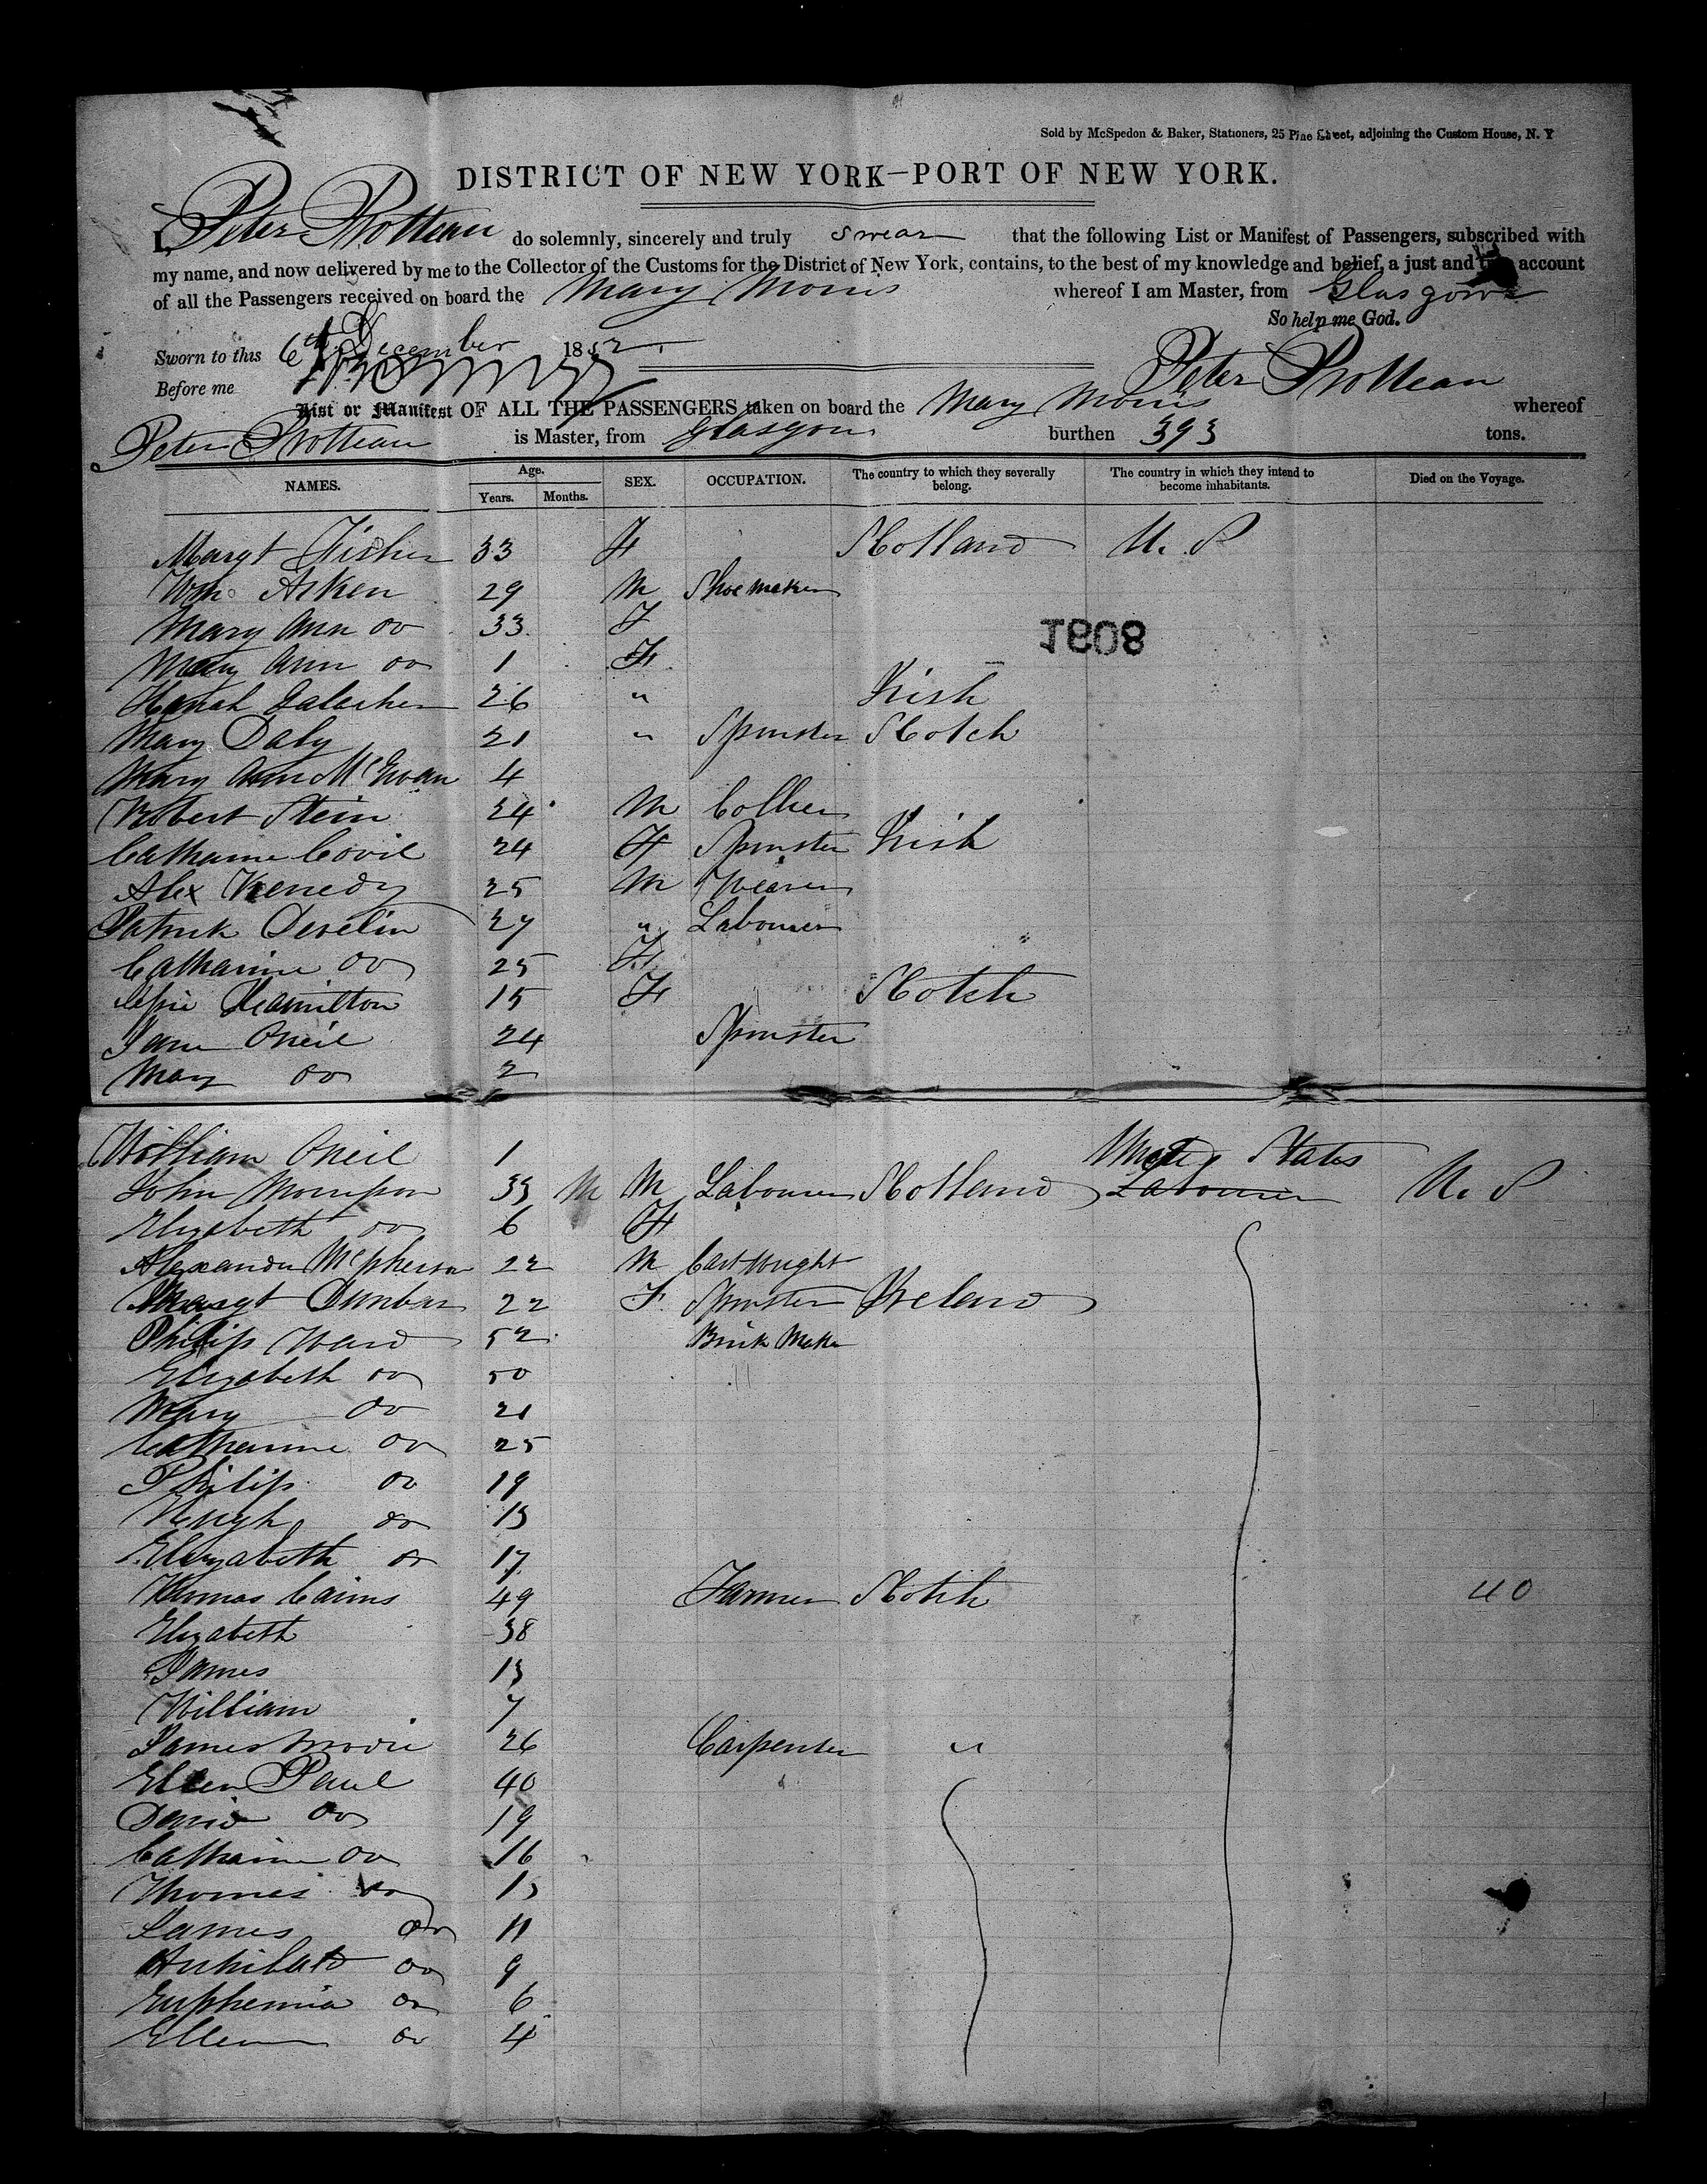 Sold by McSpedon & Baker, Stationers, 25 Pine Street, adjoining the Custom House, N. Y
DISTRICT OF NEW YORK—PORT OF NEW YORK.
I, Peter do solemnly, sincerely and truly swear that the following List or Manifest of Passengers, subscribed with
my name, and now delivered by me to the Collector of the Customs for the District of New York, contains, to the best of my knowledge and belief, a just and true account
of all the Passengers received on board the Mary Morris whereof I am Master, from Glasgow
So help me God.
Sworn to this 6th December 1852.
Before me
Peter
List or Manifest OF ALL THE PASSENGERS taken on board the Mary Morris whereof
Peter is Master, from Glasgow burthen 393 tons.
NAMES. Age. Years. Months. SEX. OCCUPATION. The country to which they severally belong. The country in which they intend to become inhabitants. Died on the Voyage.
Margt Fisher 33 F Scotland U. S
Wm. Aiken 29 M Shoemaker
Mary Ann do 33 F
1808
Mary Ann do 1 F
Hanah Galacher 26 " Irish
Mary Daly 21 " Spinster Scotch
Mary Ann McEwan 4
Robert Stein 24 M Collier
Catharine Covil 24 F Spinster Irish
Alex Kenedy 25 M Weaver
Patrick Develin 27 " Labourer
Catharine do 25 F
Hamilton 15 F Scotch
Jane Oneil 24 Spinster
Mary do 2
William Oneil 1 United States
John Morrison 33 M M Labourer Scotland Labourer U. S
Elizabeth do 6 F
Alexander McPherson 22 M Cartwright
Margt Dunbar 22 F. Spinster Ireland
Philip Ward 52 Brick Maker
Elizabeth do 50
Mary do 21
Catharine do 25
Philip do 19
Hugh do 13
Elizabeth do 17
Thomas Cairns 49 Farmer Scotch 40
Elizabeth 38
James 13
William 7
James Moore 26 Carpenter "
Ellen Paul 40
David do 19
Catharine do 16
Thomas do 13
James do 11
Archibald do 9
Euphemia do 6
Ellen do 4